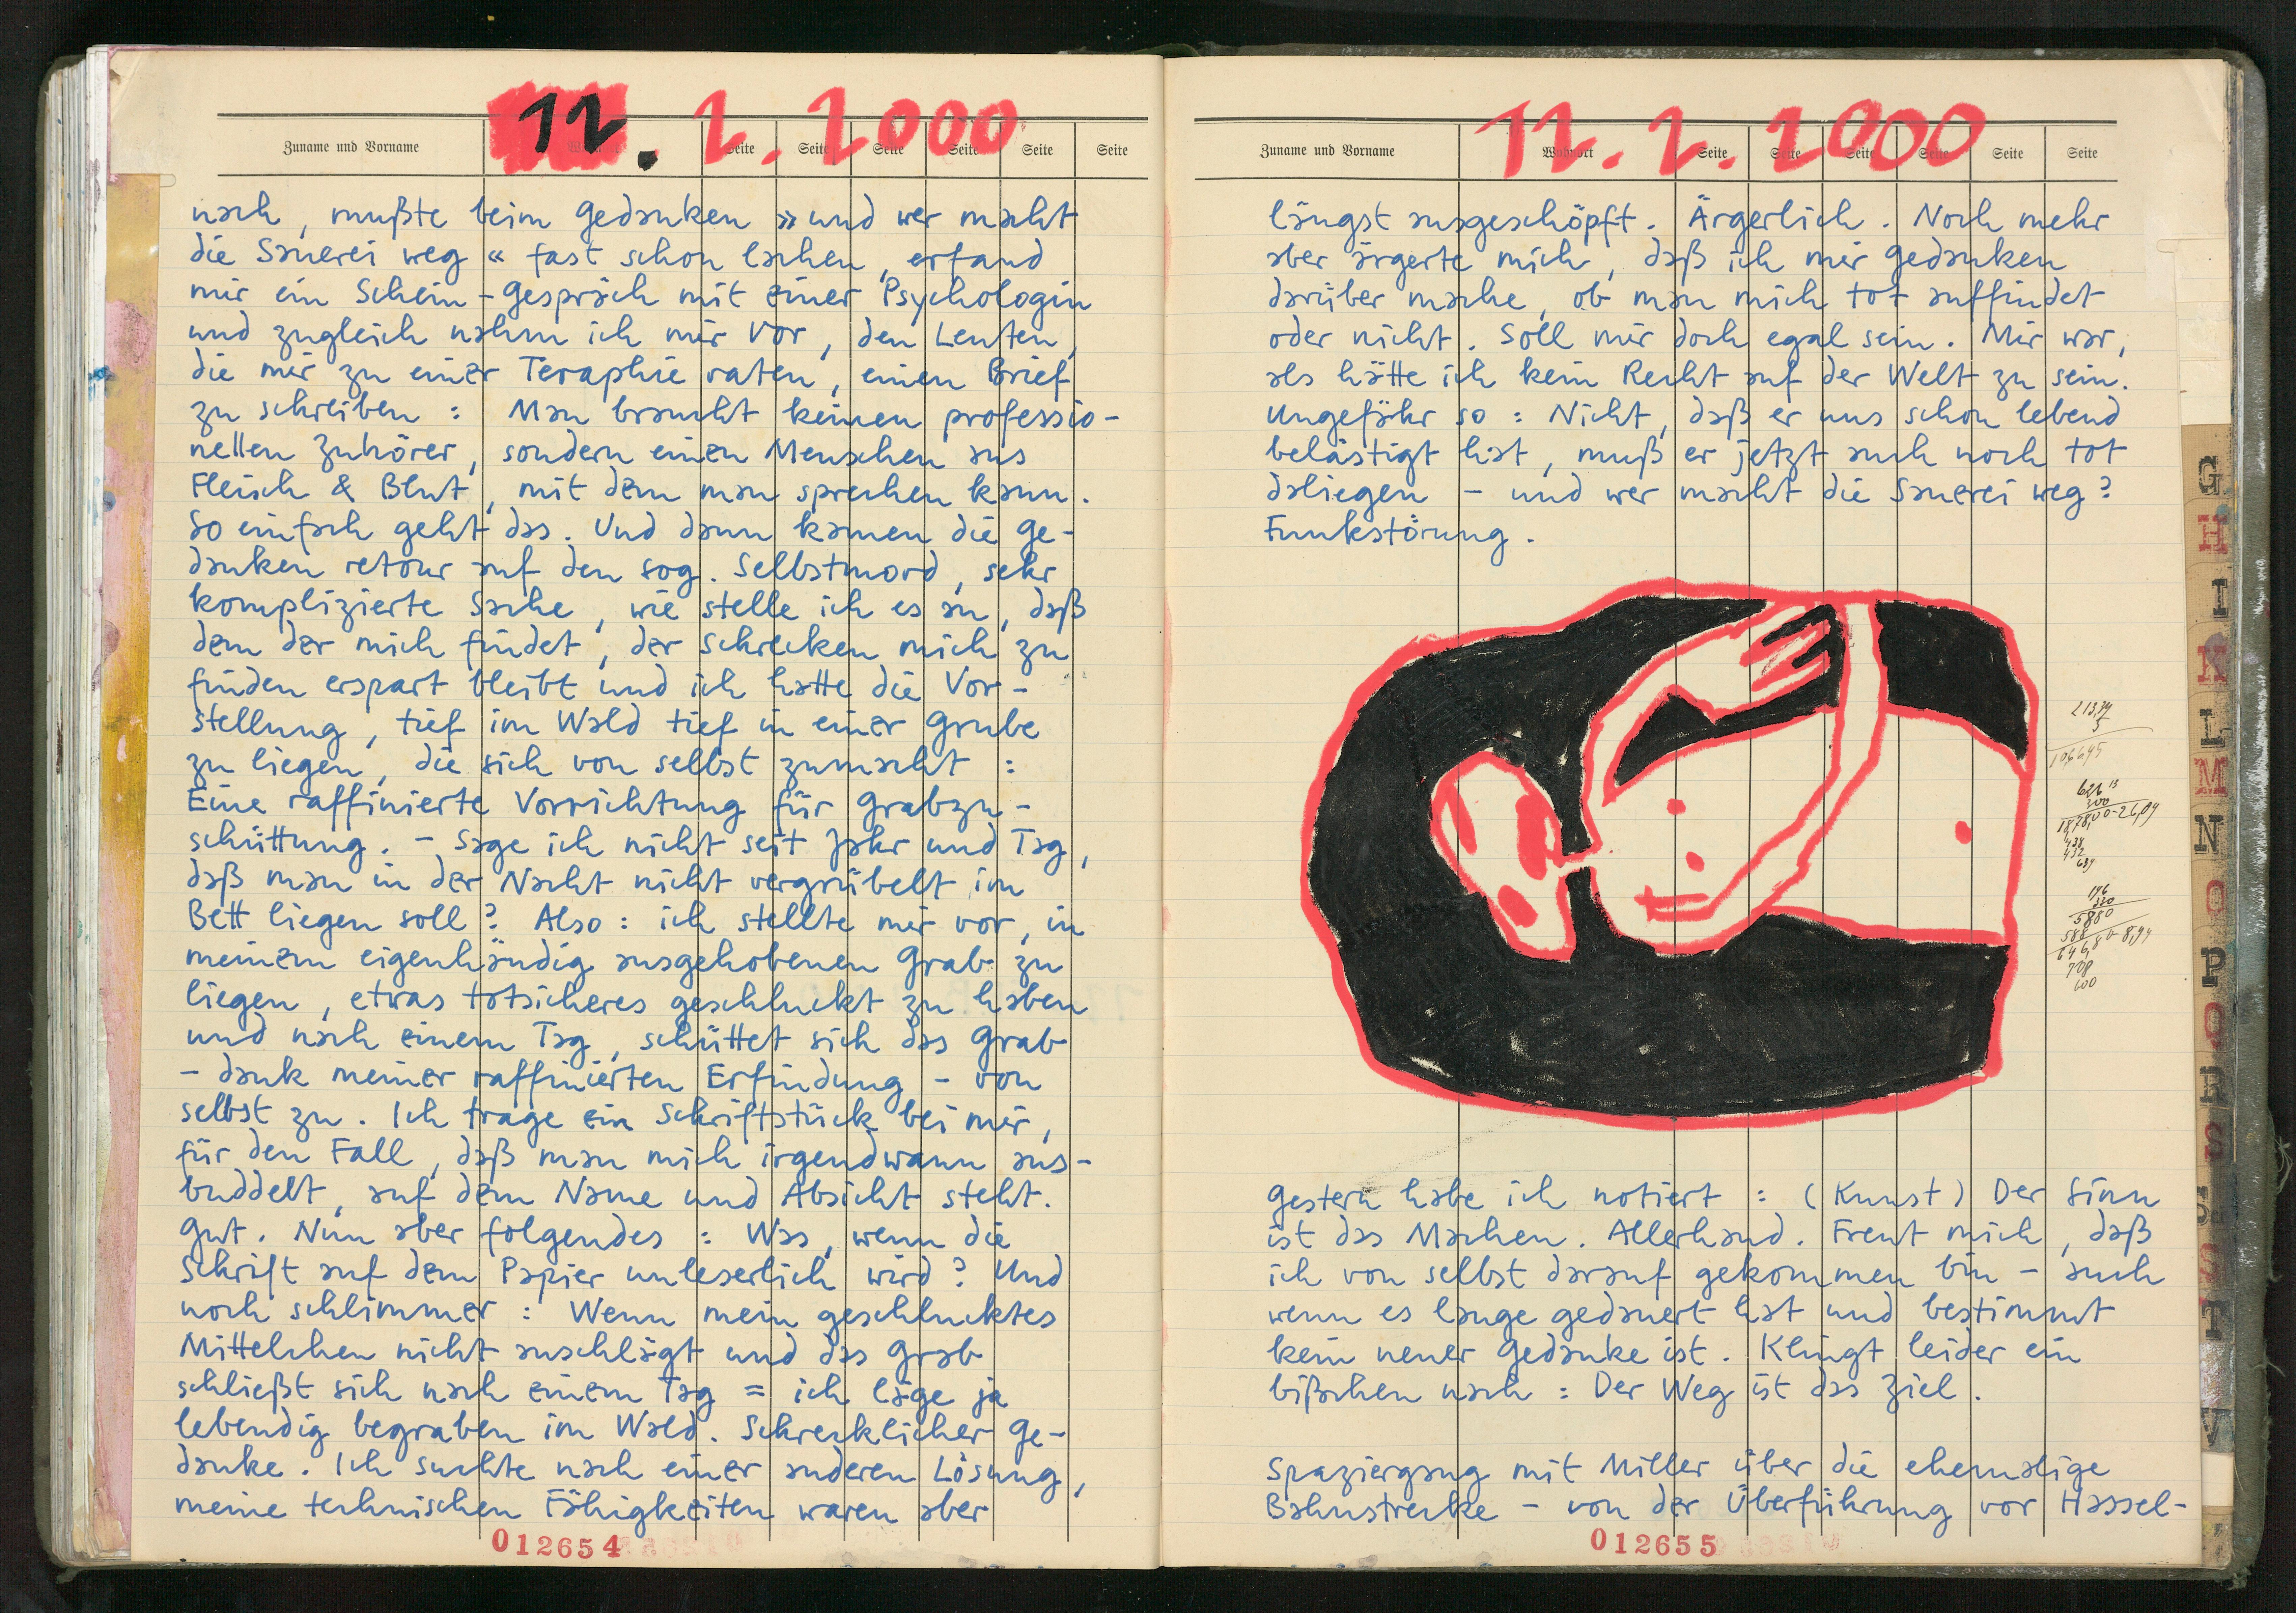 12. 2. 2000
Zuname und Vorname Seite Seite Seite Seite Seite Seite
nach, mußte beim Gedanken »und wer macht
die Sauerei weg« fast schon lachen, erfand
mir ein Schein-Gespräch mit einer Psychologin
und zugleich nahm ich mir vor, den Leuten,
die mir zu einer Teraphie raten, einen Brief
zu schreiben: Man braucht keinen professio-
nellen Zuhörer, sondern einen Menschen aus
Fleisch & Blut, mit dem man sprechen kann.
So einfach geht das. Und dann kamen die Ge-
danken retour auf den sog. Selbstmord, sehr
komplizierte Sache, wie stelle ich es an, daß
dem der mich findet, der Schrecken mich zu
finden erspart bleibt und ich hatte die Vor-
stellung, tief im Wald tief in einer Grube
zu liegen, die sich von selbst zumacht:
Eine raffinierte Vorrichtung für Grabzu-
schüttung. - Sage ich nicht seit Jahr und Tag,
daß man in der Nacht nicht vergrübelt im
Bett liegen soll? Also: ich stellte mir vor, in
meinem eigenhändig ausgehobenen Grab zu
liegen, etwas totsicheres geschluckt zu haben
und nach einem Tag, schüttet sich das Grab
- dank meiner raffinierten Erfindung - von
selbst zu. Ich trage ein Schriftstück bei mir,
für den Fall, daß man mich irgendwann aus-
buddelt, auf dem Name und Absicht steht.
Gut. Nun aber folgendes: Was, wenn die
Schrift auf dem Papier unleserlich wird? Und
noch schlimmer: Wenn mein geschlucktes
Mittelchen nicht anschlägt und das Grab
schließt sich nach einem Tag = ich läge ja
lebendig begraben im Wald. Schrecklicher Ge-
danke. Ich suchte nach einer anderen Lösung,
meine technischen Fähigkeiten waren aber
012654
12. 2. 2000
Zuname und Vorname Wohnort Seite Seite Seite Seite Seite Seite
längst ausgeschöpft. Ärgerlich. Noch mehr
aber ärgerte mich, daß ich mir Gedanken
darüber mache, ob man mich tot auffindet
oder nicht. Soll mir doch egal sein. Mir war,
als hätte ich kein Recht auf der Welt zu sein.
Ungefähr so: Nicht, daß er uns schon lebend
belästigt hat, muß er jetzt auch noch tot
daliegen - und wer macht die Sauerei weg?
Funkstörung.
Gestern habe ich notiert: (Kunst) Der Sinn
ist das Machen. Allerhand. Freut mich, daß
ich von selbst darauf gekommen bin - auch
wenn es lange gedauert hat und bestimmt
kein neuer Gedanke ist. Klingt leider ein
bißchen nach: Der Weg ist das Ziel.
Spaziergang mit Miller über die ehemalige
Bahnstrecke - von der Überführung vor Hassel-
012655
G
H
I
K
L
M
N
O
P
Q
R
S
St
T
V